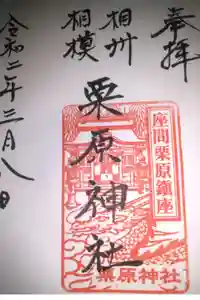 奉拝
相州
相模
栗原神社
令和二年三月八日
座間栗原鎮座
栗原神社